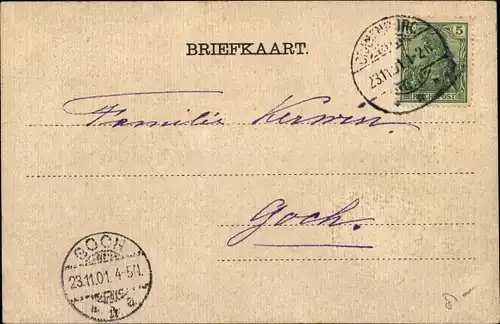 BRIEFKAART.
23.11.01. 1-2N.
5
REICHSPOST
Familie Kerwin.
Goch.
GOCH
23.11.01. 4-5N.